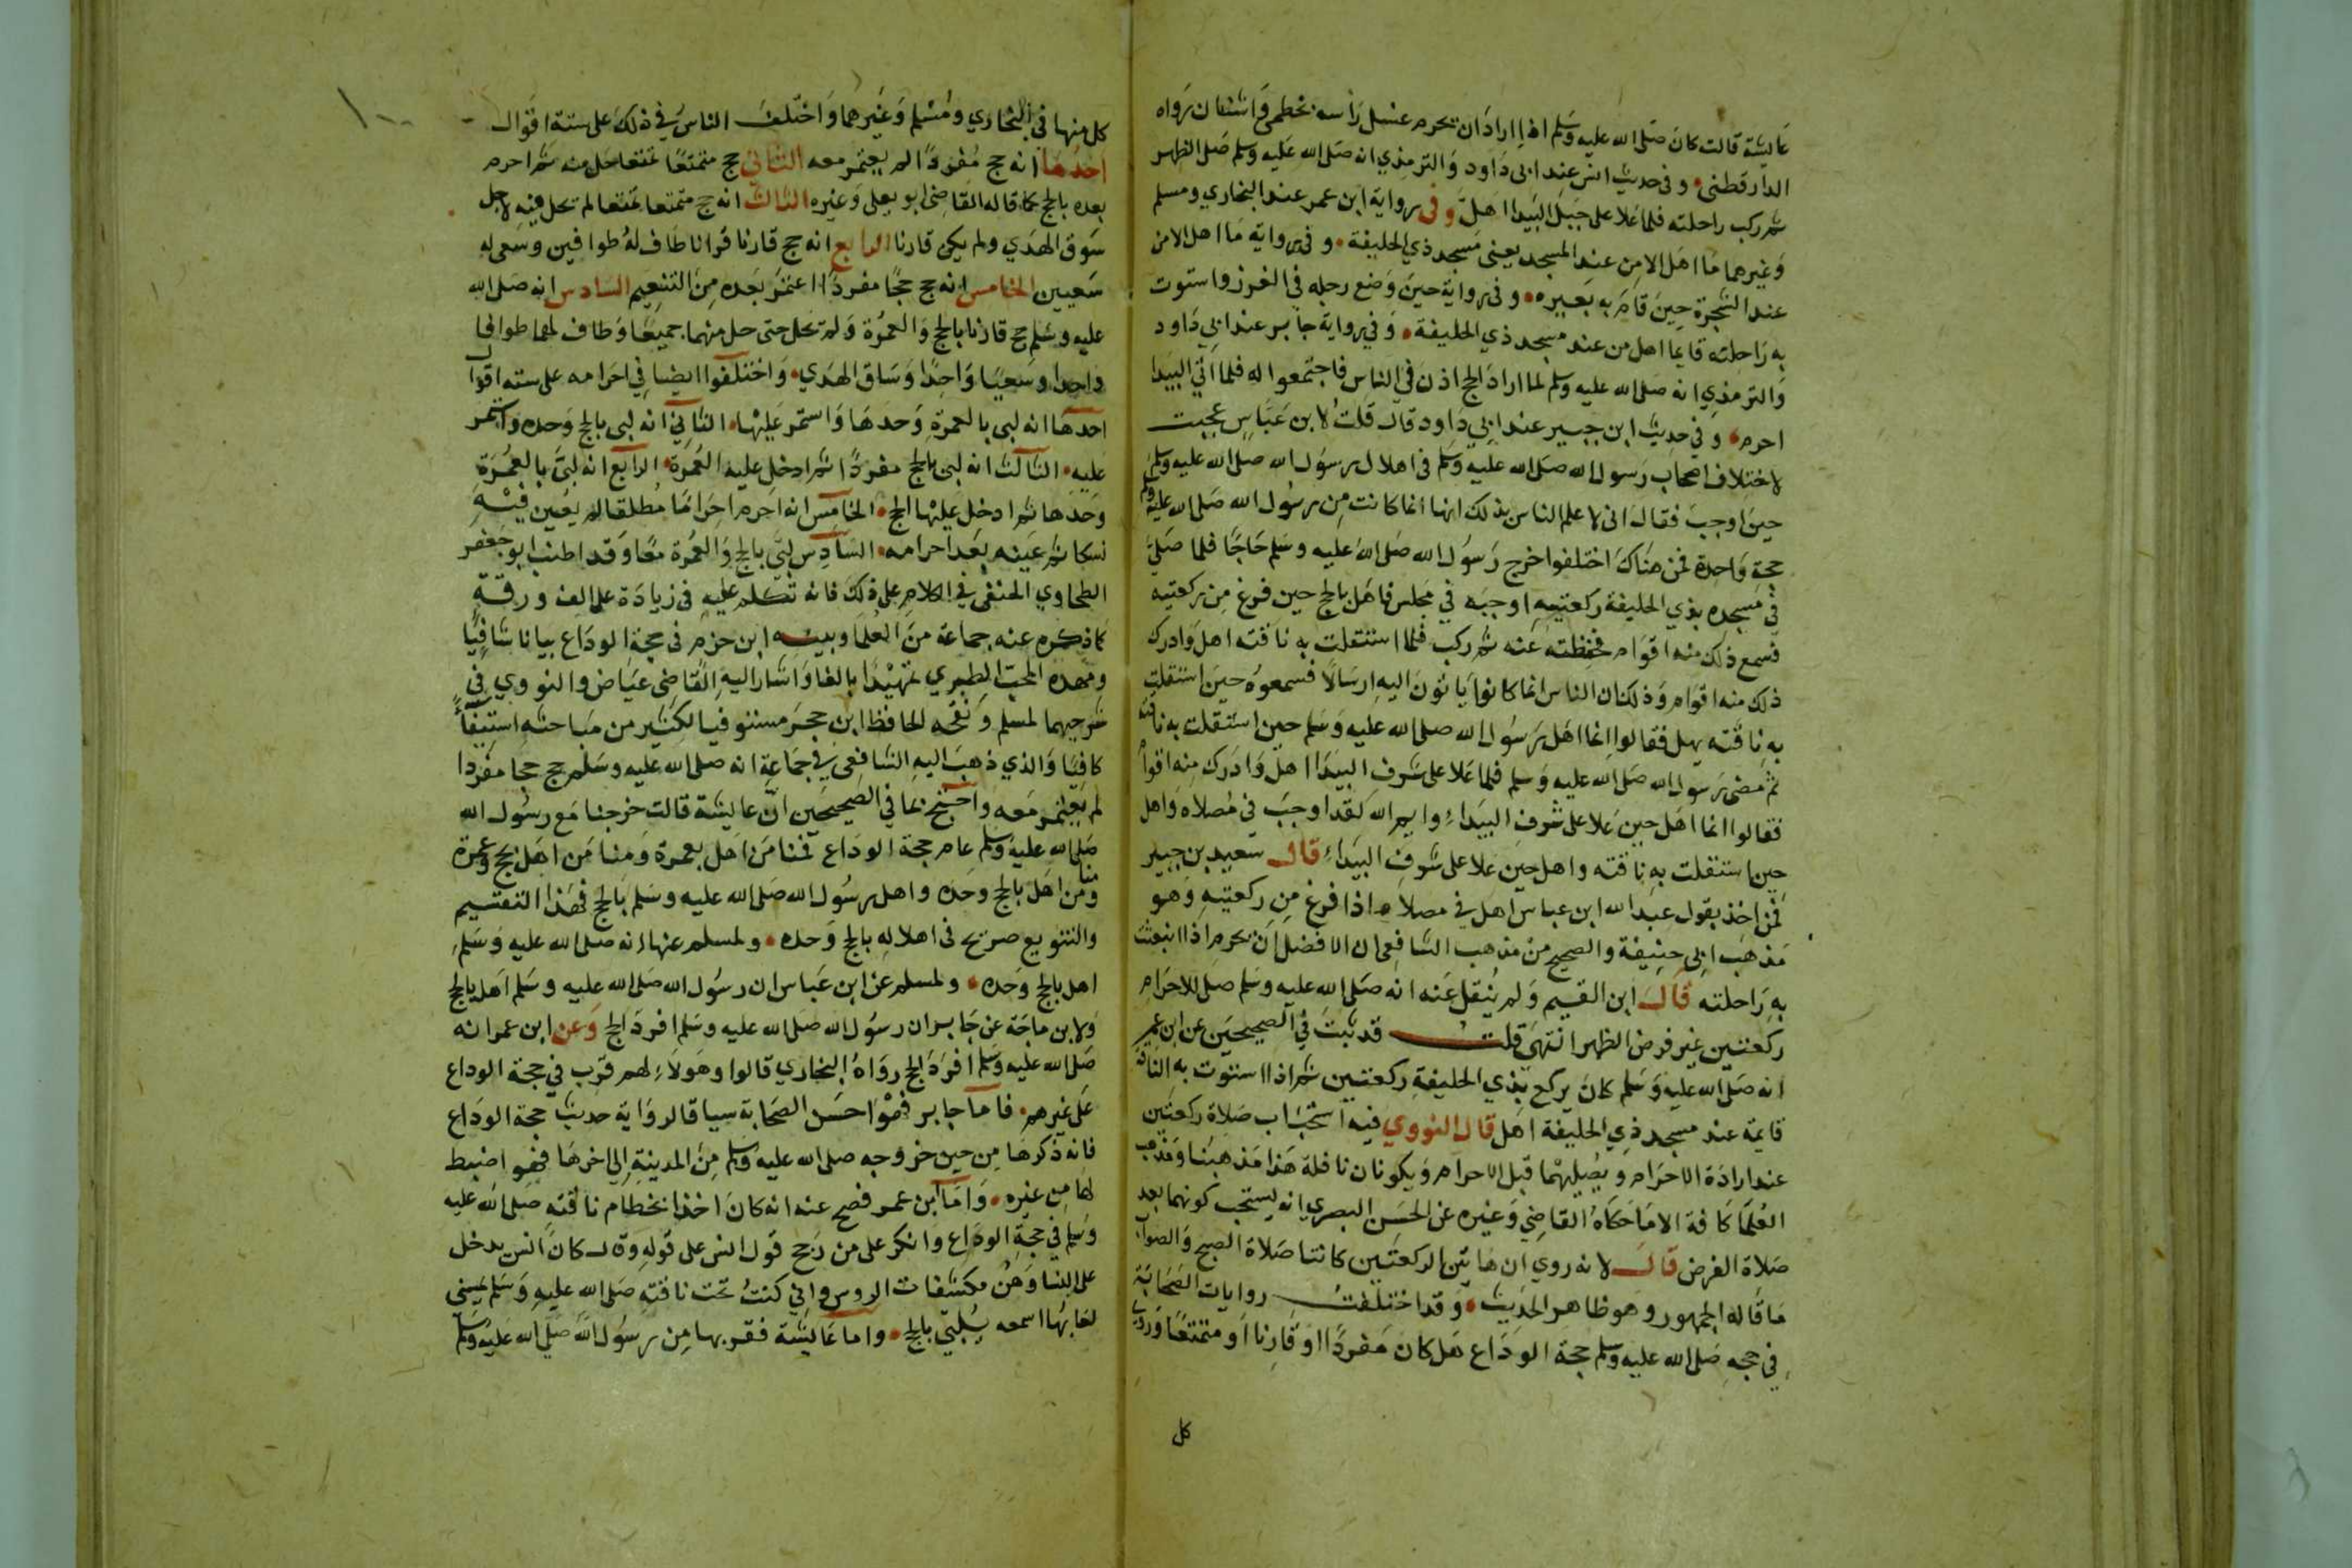 عايشة قالت كان صلى الله عليه وسلم اذا اراد ان يحرم غسل رأسه بخطمى واشنان رواه
الدارقطنى وفى حديث انس عند ابى داود والترمذي انه صلى الله عليه وسلم صلى الظهر
ثم ركب راحلته فلما علا على جبل البيدا اهل وفى رواية ابن عمر عند البخاري ومسلم
وغيرهما ما اهل الا من عند المسجد يعنى مسجد ذي الحليفة وفى رواية ما اهل الا من
عند الشجرة حين قام به بعيره وفى رواية حين وضع رجله في الغرز واستوت
به راحلته قايما اهل من عند مسجد ذي الحليفة وفى رواية جابر عند ابي داود
والترمذي انه صلى الله عليه وسلم لما اراد الحج اذن في الناس فاجتمعوا له فلما اتي البيدا
احرم وفي حديث ابن جبير عند ابي داود قال قلت لابن عباس عجبت
لاختلاف اصحاب رسول الله صلى الله عليه وسلم فى اهلال رسول الله صلى الله عليه وسلم
حين اوجب فقال انى لاعلم الناس بذلك انها انما كانت من رسول الله صلى الله عليه وسلم
حجة واحدة فمن هناك اختلفوا خرج رسول الله صلى الله عليه وسلم حاجا فلما صلى
في مسجده بذي الحليفة ركعتيه اوجبه في مجلس فاهل بالحج حين فرغ من ركعتيه
فسمع ذلك منه اقوام فحفظته عنه ثم ركب فلما استقلت به ناقته اهل وادرك
ذلك منه اقوام وذلك ان الناس انما كانوا ياتون اليه ارسالا فسمعوه حين استقلت
به ناقته يهل فقالوا انما اهل رسول الله صلى الله عليه وسلم حين استقلت به ناقته
ثم مضى رسول الله صلى الله عليه وسلم فلما علا على شرف البيدا اهل وادرك منه اقوام
فقالوا انما اهل حين علا على شرف البيداء وايم الله لقد اوجب في مصلاه واهل
حين استقلت به ناقته واهل حين علا على شرف البيداء قال سعيد بن جبير
فمن اخذ بقول عبد الله ابن عباس اهل في مصلاه اذا فرغ من ركعتيه وهو
مذهب ابى حنيفة والصحيح من مذهب الشافعى ان الافضل ان يحرم اذا انبعثت
به راحلته قال ابن القيم ولم ينقل عنه انه صلى الله عليه وسلم صلى للاحرام
ركعتين غير فرض الظهر انتهى قلت قد ثبت في الصحيحين عن ابن عمر
انه صلى الله عليه وسلم كان يركع بذي الحليفة ركعتين ثم اذا استوت به الناقة
قايمة عند مسجد ذي الحليفة اهل قال النووي فيه استحباب صلاة ركعتين
عند ارادة الاحرام ويصليهما قبل الاحرام ويكونان نافلة هذا مذهبنا ومذهب
العلما كافة الا ما حكاه القاضي وغيره عن الحسن البصري انه يستحب كونهما بعد
صلاة الفرض قال لانه روي ان هاتين الركعتين كانتا صلاة الصبح والصواب
ما قاله الجمهور وهو ظاهر الحديث وقد اختلفت روايات الصحابة
في حجه صلى الله عليه وسلم حجة الوداع هل كان مفردا او قارنا او متمتعا وروي
كل
كل منها في البخاري ومسلم وغيرهما واختلف الناس في ذلك على ستة اقوال
احدها انه حج مفردا لم يعتمر معه الثاني حج متمتعا تمتعا حل منه ثم احرم
بعده بالحج كما قاله القاضى ابو يعلى وغيره الثالث انه حج متمتعا تمتعا لم تحل فيه لاجل
سوق الهدي ولم يكن قارنا الرابع انه حج قارنا قرانا طاف له طوافين وسعى له
سعيين الخامس انه حج حجا مفردا اعتمر بعده من التنعيم السادس انه صلى الله
عليه وسلم حج قارنا بالحج والعمرة ولم يحل حتى حل منهما جميعا وطاف لهما طوافا
واحدا وسعيا واحدا وساق الهدي واختلفوا ايضا في احرامه على سته اقوال
احدها انه لبى بالعمرة وحدها واستمر عليها الثاني انه لبى بالحج وحده واستمر
عليه الثالث انه لبى بالحج مفردا ثم ادخل عليه العمرة الرابع انه لبى بالعمرة
وحدها ثم ادخل عليها الحج الخامس انه احرم احراما مطلقا لم يعين فيه
نسكا ثم عينه بعد احرامه السادس لبى بالحج والعمرة معا وقد اطنب ابو جعفر
الطحاوي الحنفى في الكلام على ذلك فانه تكلم عليه فى زيادة على الف ورقة
كما ذكره عنه جماعة من العلما وبينه ابن حزم فى حجة الوداع بيانا شافيا
ومهده المحب الطبري تمهيدا بالغا واشار اليه القاضى عياض والنووي في
شرحيهما لمسلم ونقحه الحافظ ابن حجر مستوفيا لكثير من مباحثه استيفاء
كافيا والذي ذهب اليه الشافعى في جماعة انه صلى الله عليه وسلم حج حجا مفردا
لم يعتمر معه واحتج بما في الصحيحين ان عايشة قالت خرجنا مع رسول الله
صلى الله عليه وسلم عام حجة الوداع فمنا من اهل بعمرة ومنا من اهل بحج وعمرة
ومنا من اهل بالحج وحده واهل رسول الله صلى الله عليه وسلم بالحج فهذا التقسيم
والتنويع صريح فى اهلاله بالحج وحده ولمسلم عنها انه صلى الله عليه وسلم
اهل بالحج وحده ولمسلم عن ابن عباس ان رسول الله صلى الله عليه وسلم اهل بالحج
ولابن ماجة عن جابر ان رسول الله صلى الله عليه وسلم افرد الحج وعن ابن عمر انه
صلى الله عليه وسلم افرد الحج رواه البخاري قالوا وهولاء لهم قرب في حجة الوداع
على غيرهم فاما جابر فهو احسن الصحابة سياقا لرواية حديث حجة الوداع
فانه ذكرها من حين خروجه صلى الله عليه وسلم من المدينة الى اخرها فهو اضبط
لها من غيره واما ابن عمر فصح عنه انه كان اخذا بخطام ناقته صلى الله عليه
وسلم في حجة الوداع وانكر على من رجح قول انس على قوله وقال كان انس يدخل
على النسا وهن مكشفات الروس واني كنت تحت ناقته صلى الله عليه وسلم يمسنى
لعابها اسمعه يلبي بالحج واما عايشة فقربها من رسول الله صلى الله عليه وسلم